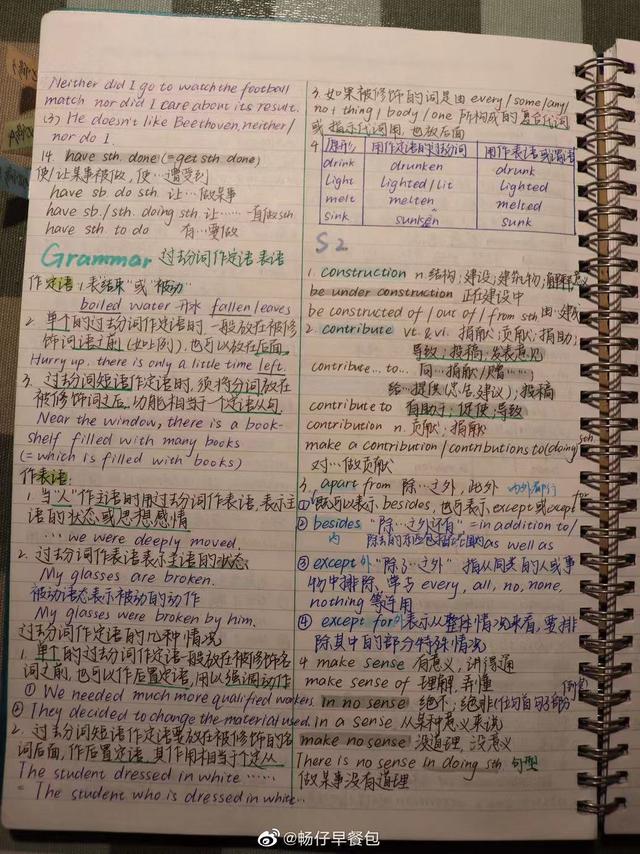 Neither did I go to watch the football
match nor did I care about its result.
(3) He doesn't like Beethoven, neither/
nor do I.
14. have sth. done (=get sth done)
使/让某事被做, 使…遭受到
have sb. do sth 让…做某事
have sb./sth. doing sth 让……一直做sth
have sth to do 有…要做
Grammar 过去分词作定语 表语
作定语 1. 表"结束"或"被动"
boiled water 开水 fallen leaves
2. 单个的过去分词作定语时一般放在被修
饰词语之前(如上例), 也可以放在后面.
Hurry up, there is only a little time left.
3. 过去分词短语作定语时, 须将分词放在
被修饰词之后, 功能相当于一个定语从句.
Near the window, there is a book-
shelf filled with many books
(= which is filled with books)
作表语:
1. 当"人"作主语时用过去分词作表语, 表示主
语的状态或思想感情
… we were deeply moved.
2. 过去分词作表语表示主语的状态
My glasses are broken.
被动语态表示被动的动作
My glasses were broken by him.
过去分词作定语的几种情况
1. 单个的过去分词作定语一般放在被修饰名
词之前, 也可以作后置定语, 用以强调动作
① We needed much more qualified workers
② They decided to change the material used.
2. 过去分词短语作定语要放在被修饰的名
词后面, 作后置定语, 其作用相当于个定从
The student dressed in white ……
The student who is dressed in white…
3. 如果被修饰的词是由 every/some/any/
no + thing/body/one 所构成的复合代词
或指示代词用, 也放后面
4 原形 用作定语的过去分词 用作表语或谓语
drink drunken drunk
light lighted/lit lighted
melt melten melted
sink sunken sunk
S2
1. construction n. 结构; 建设; 建筑物;
be under construction 正在建设中
be constructed of/out of/from sth 由…建成
2. contribute vt & vi. 捐献; 贡献; 捐助;
导致; 投稿; 发表意见
contribute… to… 向…捐献/赠……;
给…提供(忠告, 建议); 投稿
contribute to 有助于; 促使; 导致
contribution n. 贡献; 捐献
make a contribution/contributions to (doing) sth
对…做贡献
3. apart from 除…之外, 此外 内外都行
① 既可以表示 besides, 也可表示 except 或 except for
② besides "除…之外还有" = in addition to/
内 as well as
③ except 外 "除了…之外" 指从同类的人或事
物中排除, 常与 every, all, no, none,
nothing 等连用
④ except for 外 表示从整体情况来看, 要排
除其中的部分特殊情况
4 make sense 有意义, 讲得通
make sense of 理解, 弄懂
in no sense 绝不; 绝非 (位句首句子部分倒装)
in a sense 从某种意义来说
make no sense 没道理, 没意义
There is no sense in doing sth 句型
做某事没有道理
@畅仔早餐包